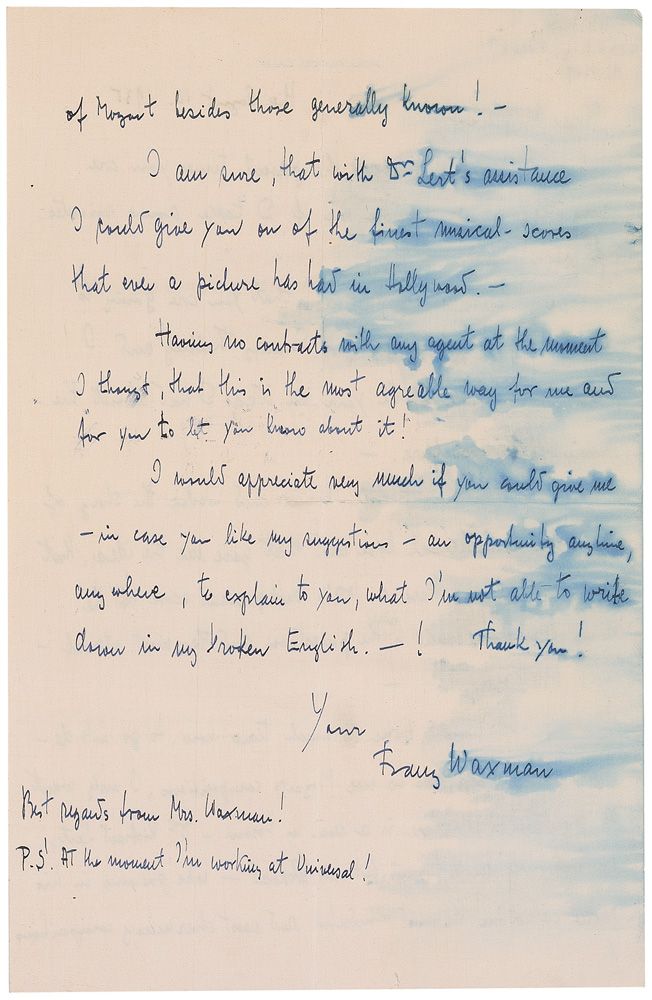 of Mozart besides those generally known! –
I am sure, that with Dr Lert's assistance
I could give you on of the finest musical-scores
that ever a picture has had in Hollywood. –
Having no contracts with any agent at the moment
I thougt, that this is the most agreable way for me and
for you to let you know about it!
I would appreciate very much if you could give me
– in case you like my suggestions – an opportunity anytime,
anywhere, to explain to you, what I'm not able to write
down in my broken English. – ! Thank you!
Your
Franz Waxman
Best regards from Mrs. Waxman!
P.S. At the moment I'm working at Universal!